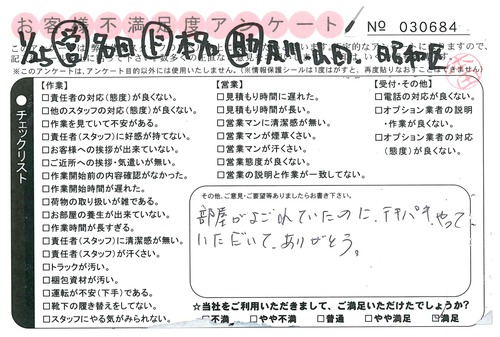 お客様不満足度アンケート
No 030684
1/25 名回 本和 及川・山田 昭和区
※このアンケートは、アンケート目的以外には使用いたしません。(※情報保護シールは1度はがすと、再度貼りなおすことはできません)
チェックリスト
【作業】
□責任者の対応(態度)が良くない。
□他のスタッフの対応(態度)が良くない。
□作業を見ていて不安がある。
□責任者(スタッフ)に好感が持てない。
□お客様への挨拶が出来ていない。
□ご近所への挨拶・気遣いが無い。
□作業開始前の内容確認がなかった。
□作業開始時間が遅れた。
□荷物の取り扱いが雑である。
□お部屋の養生が出来ていない。
□作業時間が長すぎる。
□責任者(スタッフ)に清潔感が無い。
□責任者(スタッフ)が汗くさい。
□トラックが汚い。
□梱包資材が汚い。
□運転が不安(下手)である。
□靴下の履き替えをしてない。
□スタッフにやる気がみられない。
【営業】
□見積もり時間に遅れた。
□見積もり時間が長い。
□営業マンに清潔感が無い。
□営業マンが煙草くさい。
□営業マンが汗くさい。
□営業態度が良くない。
□営業の説明と作業が一致してない。
【受付・その他】
□電話の対応が良くない。
□オプション業者の説明
・作業が良くない。
□オプション業者の対応
(態度)が良くない。
その他、ご意見・ご要望等ありましたらお書き下さい。
部屋がよごれていたのに、テキパキやって
いただいて、ありがとう。
☆当社をご利用いただきまして、ご満足いただけたでしょうか?
□不満 □やや不満 □普通 □やや満足 ☑満足